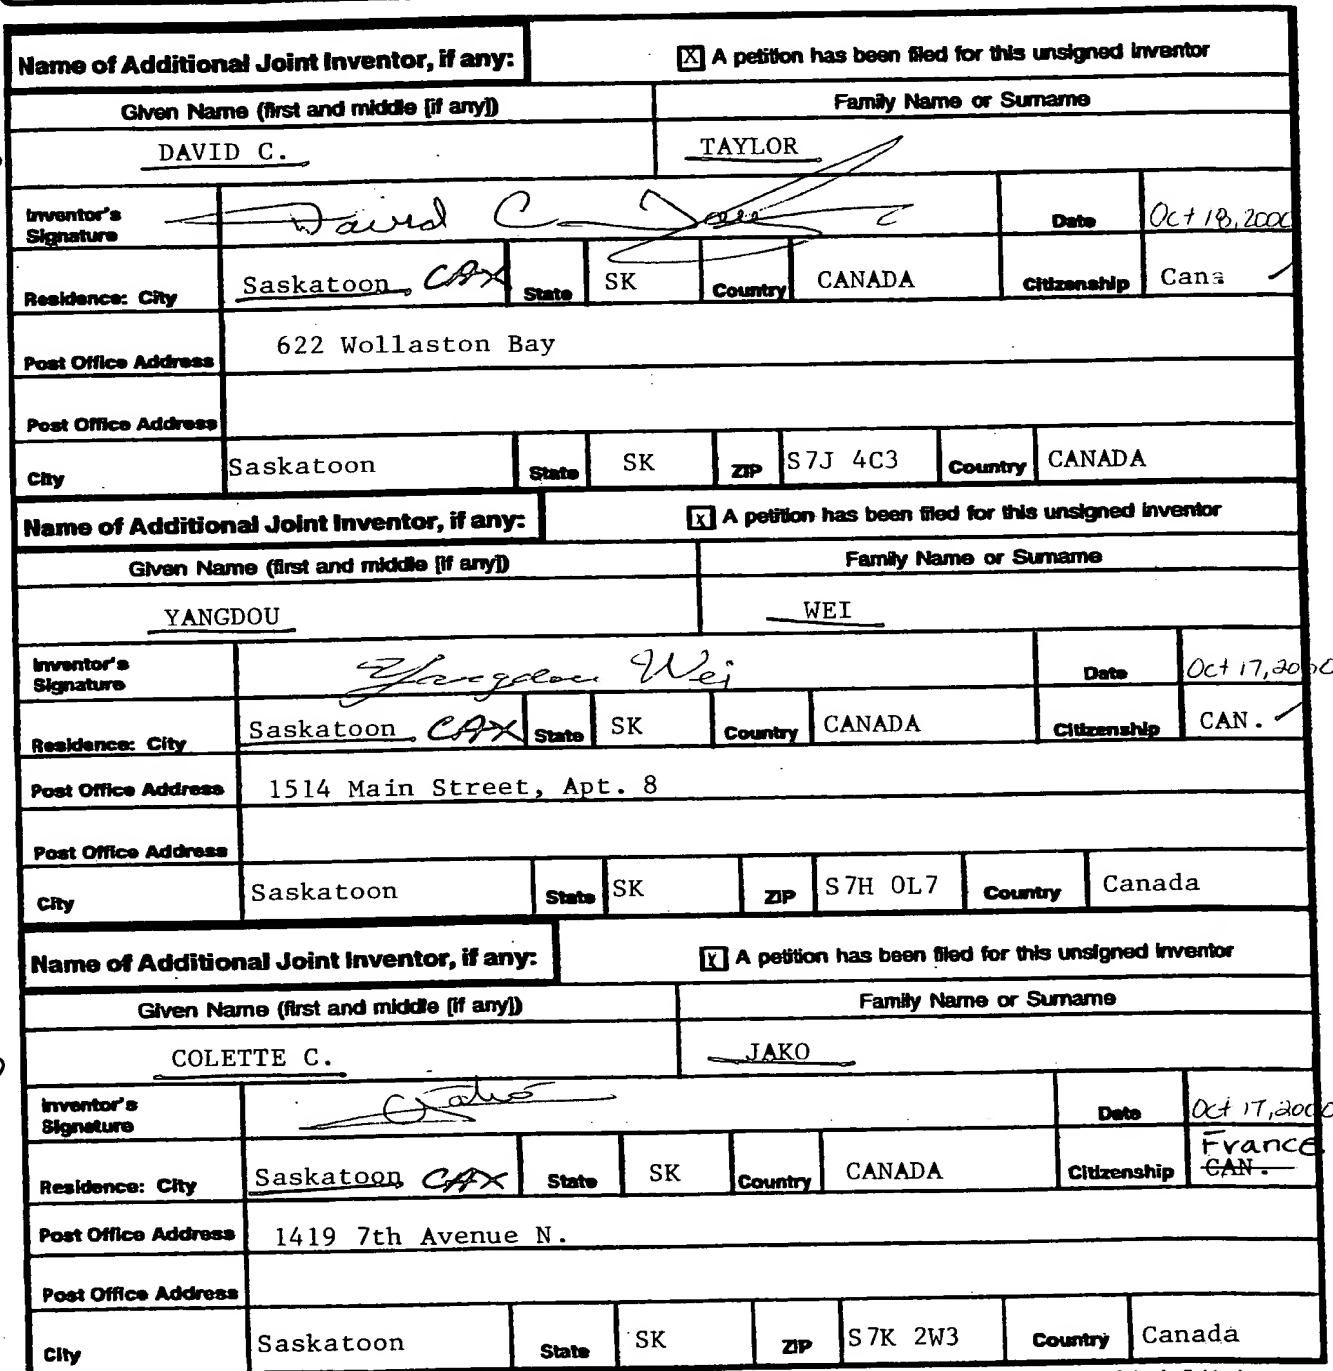 Name of Additional Joint Inventor, if any: [X] A petition has been filed for this unsigned inventor
Given Name (first and middle [if any]) Family Name or Surname
DAVID C. TAYLOR
Inventor's Signature David C. Taylor Date Oct 18, 2000
Residence: City Saskatoon CAX State SK Country CANADA Citizenship Cana
Post Office Address 622 Wollaston Bay
Post Office Address
City Saskatoon State SK ZIP S7J 4C3 Country CANADA
Name of Additional Joint Inventor, if any: [X] A petition has been filed for this unsigned inventor
Given Name (first and middle [if any]) Family Name or Surname
YANGDOU WEI
Inventor's Signature Yangdou Wei Date Oct 17, 2000
Residence: City Saskatoon CAX State SK Country CANADA Citizenship CAN.
Post Office Address 1514 Main Street, Apt. 8
Post Office Address
City Saskatoon State SK ZIP S7H 0L7 Country Canada
Name of Additional Joint Inventor, if any: [X] A petition has been filed for this unsigned inventor
Given Name (first and middle [if any]) Family Name or Surname
COLETTE C. JAKO
Inventor's Signature Date Oct 17, 2000
France
Residence: City Saskatoon CAX State SK Country CANADA Citizenship CAN.
Post Office Address 1419 7th Avenue N.
Post Office Address
City Saskatoon State SK ZIP S7K 2W3 Country Canada